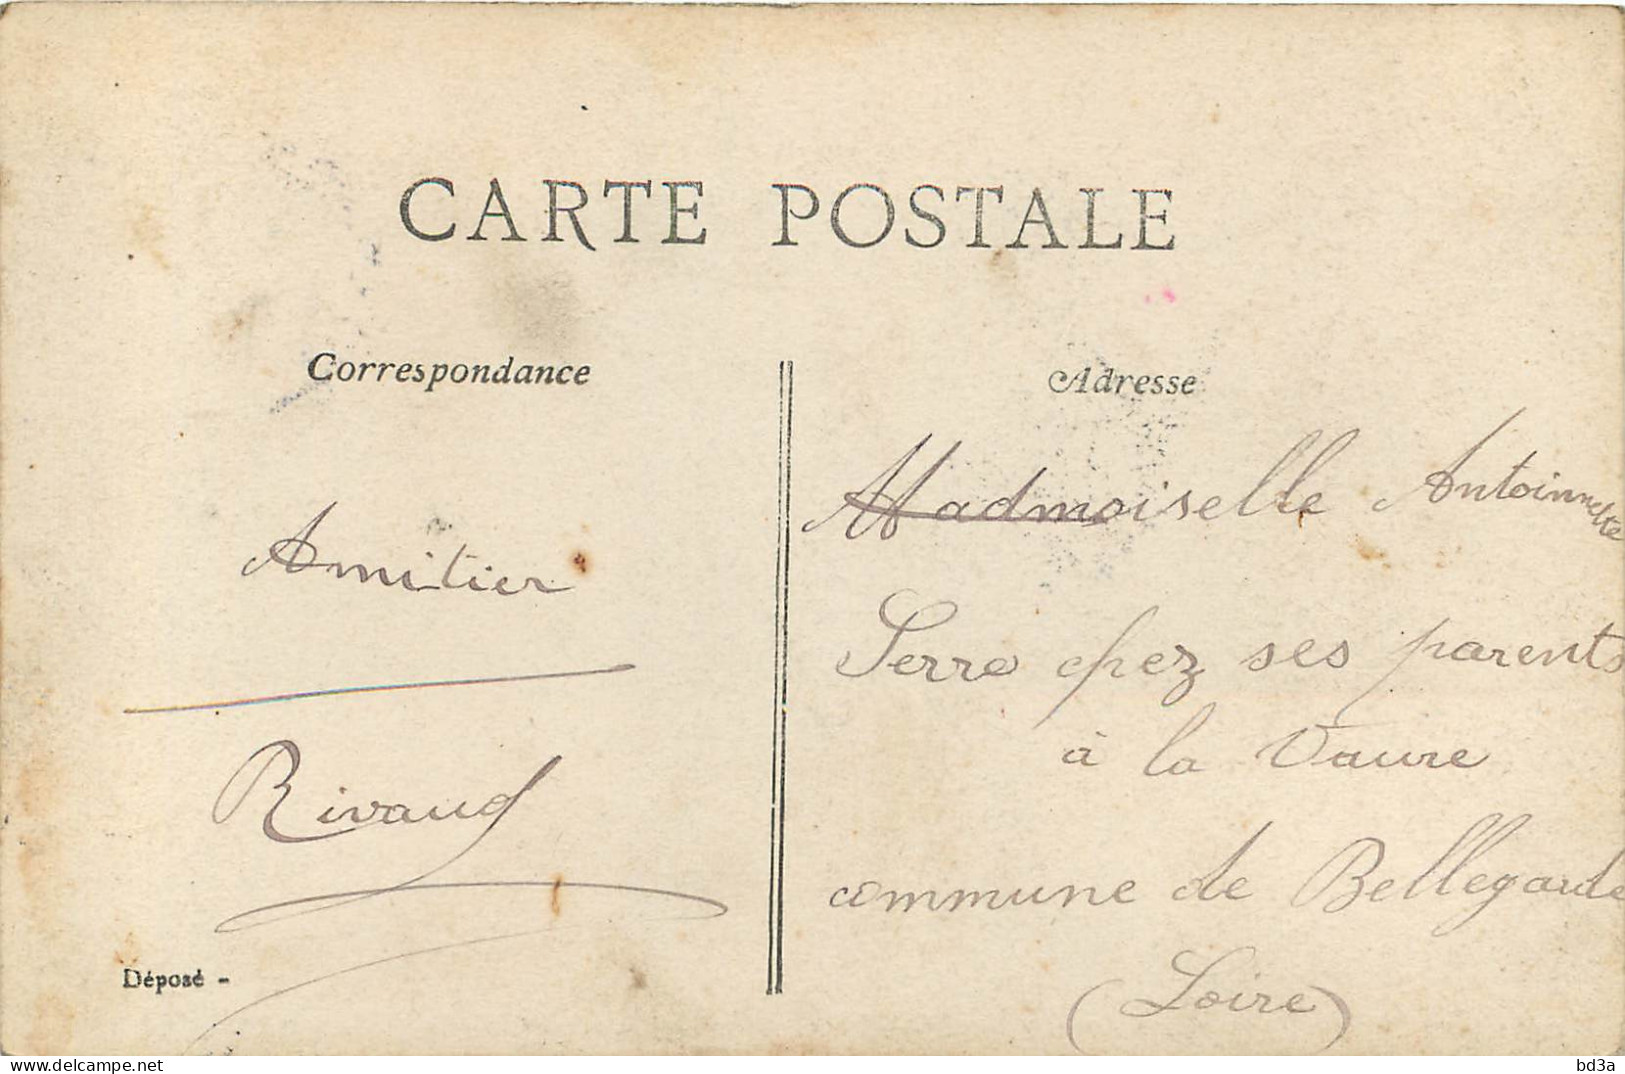 CARTE POSTALE
Correspondance
Amitier
Rivaud
Déposé -
Adresse
Madmoiselle Antoinnette
Serre chez ses parents
à la Vaure
commune de Bellegarde
(Loire)
www.delcampe.net
bd3a